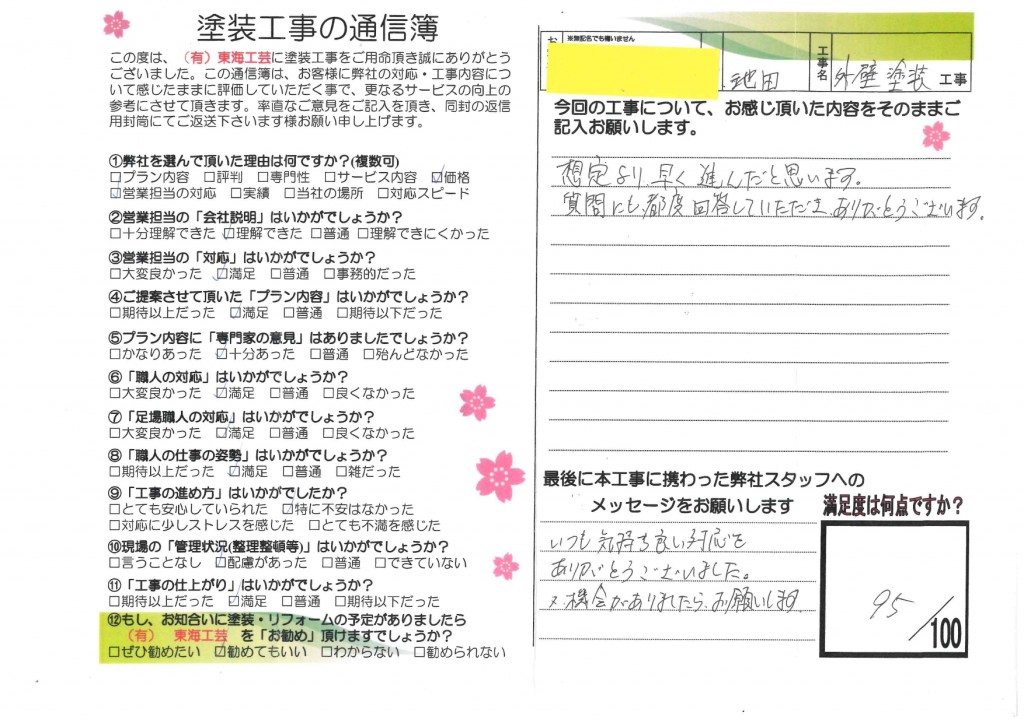 塗装工事の通信簿
この度は、(有)東海工芸に塗装工事をご用命頂き誠にありがとう
ございました。この通信簿は、お客様に弊社の対応・工事内容につ
いて感じたままに評価していただく事で、更なるサービスの向上の
参考にさせて頂きます。率直なご意見をご記入を頂き、同封の返信
用封筒にてご返送下さいます様お願い申し上げます。
①弊社を選んで頂いた理由は何ですか?(複数可)
☑プラン内容 □評判 □専門性 □サービス内容 ☑価格
☑営業担当の対応 □実績 □当社の場所 □対応スピード
②営業担当の「会社説明」はいかがでしょうか?
□十分理解できた ☑理解できた □普通 □理解できにくかった
③営業担当の「対応」はいかがでしょうか?
□大変良かった ☑満足 □普通 □事務的だった
④ご提案させて頂いた「プラン内容」はいかがでしょうか?
□期待以上だった ☑満足 □普通 □期待以下だった
⑤プラン内容に「専門家の意見」はありましたでしょうか?
□かなりあった ☑十分あった □普通 □殆んどなかった
⑥「職人の対応」はいかがでしょうか?
□大変良かった ☑満足 □普通 □良くなかった
⑦「足場職人の対応」はいかがでしょうか?
□大変良かった ☑満足 □普通 □良くなかった
⑧「職人の仕事の姿勢」はいかがでしょうか?
□期待以上だった ☑満足 □普通 □雑だった
⑨「工事の進め方」はいかがでしたか?
□とても安心していられた ☑特に不安はなかった
□対応に少しストレスを感じた □とても不満を感じた
⑩現場の「管理状況(整理整頓等)」はいかがでしょうか?
□言うことなし ☑配慮があった □普通 □できていない
⑪「工事の仕上がり」はいかがでしょうか?
□期待以上だった ☑満足 □普通 □期待以下だった
⑫もし、お知合いに塗装・リフォームの予定がありましたら
(有) 東海工芸 を「お勧め」頂けますでしょうか?
□ぜひ勧めたい ☑勧めてもいい □わからない □勧められない
※無記名でも構いません
池田
工事名 外壁塗装 工事
今回の工事について、お感じ頂いた内容をそのままご
記入お願いします。
想定より早く進んだと思います。
質問にも、都度回答していただき、ありがとうございます。
最後に本工事に携わった弊社スタッフへの
メッセージをお願いします
いつも気持ち良い対応を
ありがとうございました。
又、機会がありましたら、お願いします
満足度は何点ですか?
95/100